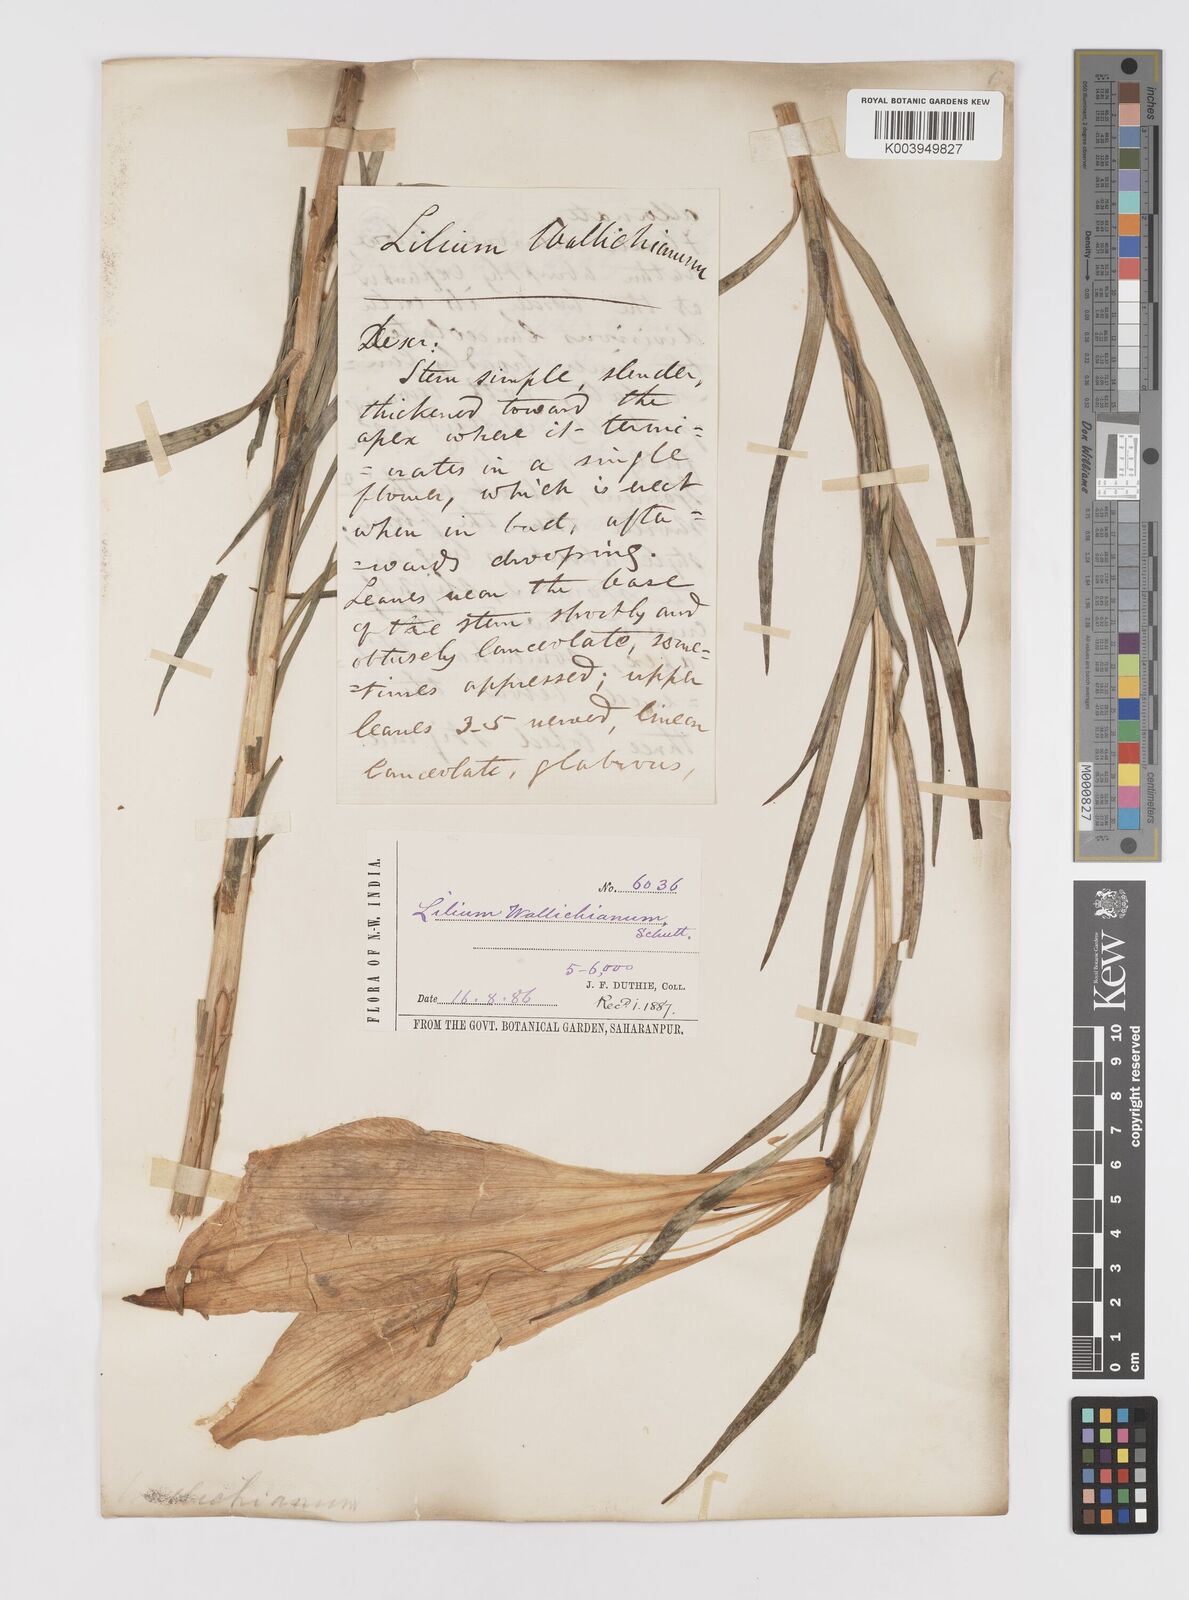 ROYAL BOTANIC GARDENS KEW
K003949827
Lilium Wallichianum
Descr:
Stem simple, slender,
thickened toward the
apex where it termi=
=nates in a single
flower, which is erect
when in bud, after=
=wards drooping.
Leaves near the base
of the stem shortly and
obtusely lanceolate, some=
=times appressed; upper
leaves 3-5 nerved, linear
lanceolate, glabrous,
FLORA OF N.-W. INDIA.
No. 6036
Lilium Wallichianum,
Schult.
5-6,000
J. F. DUTHIE, COLL.
Date 16.8.86
Recd. 1.1887.
FROM THE GOVT. BOTANICAL GARDEN, SAHARANPUR.
Wallichianum
inches
centimetres
Don Williams
M000827
Kew
Royal Botanic Gardens
copyright reserved
10
9
8
7
6
5
4
3
2
1
0
cm